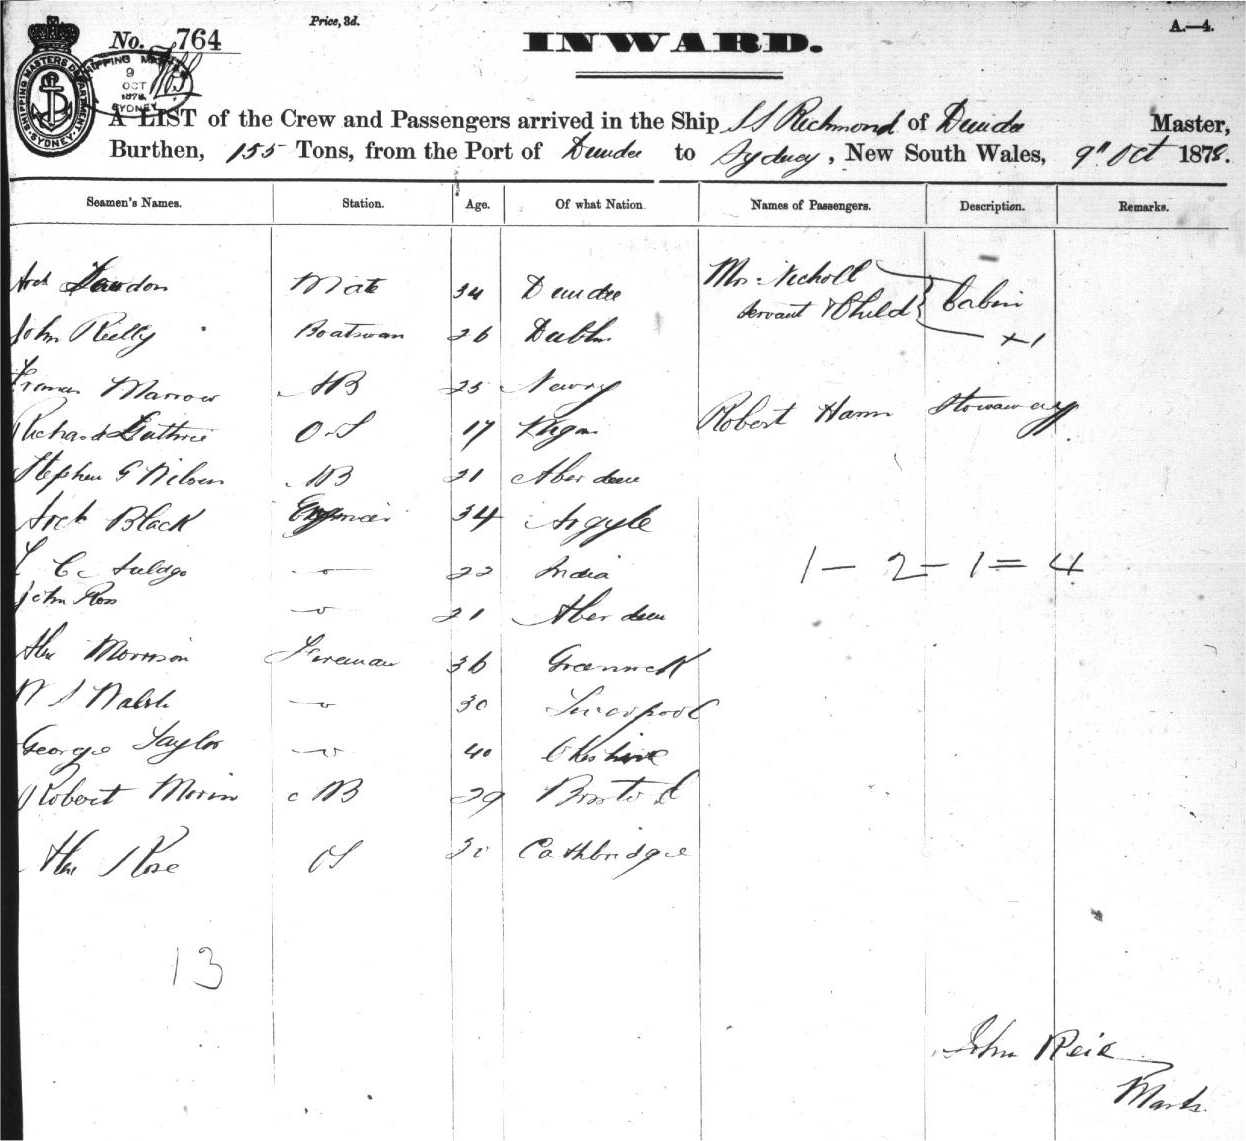 Price, 3d.
A.—4.
No. 764
INWARD.
SHIPPING MASTERS DEPARTMENT SYDNEY
SHIPPING MASTERS
9
OCT
1878
SYDNEY
A LIST of the Crew and Passengers arrived in the Ship SS Richmond of Dundee Master,
Burthen, 155 Tons, from the Port of Dundee to Sydney, New South Wales, 9" Oct 1878.
Seamen's Names. Station. Age. Of what Nation Names of Passengers. Description. Remarks.
Arch Mate 34 Dundee Mrs Nicholl
Servant & Child } Cabin
John Reilly Boatswan 26 Dublin + 1
Marrow AB 25 Newry
Richard Guthrie OS 17 Robert Hann Stowaway
Stephen G Wilson AB 21 Aberdeen
Arch Black Engineer 34 Argyle
C 22 India 1 - 2 - 1 = 4
John Ross 21 Aberdeen
Alex Morrison Fireman 36 Greenock
W S Walsh 30 Liverpool
George Taylor 40 Cheshire
Robert Morin AB 29 Bristol
Alex Rose OS Cathbridge
13
John Reid